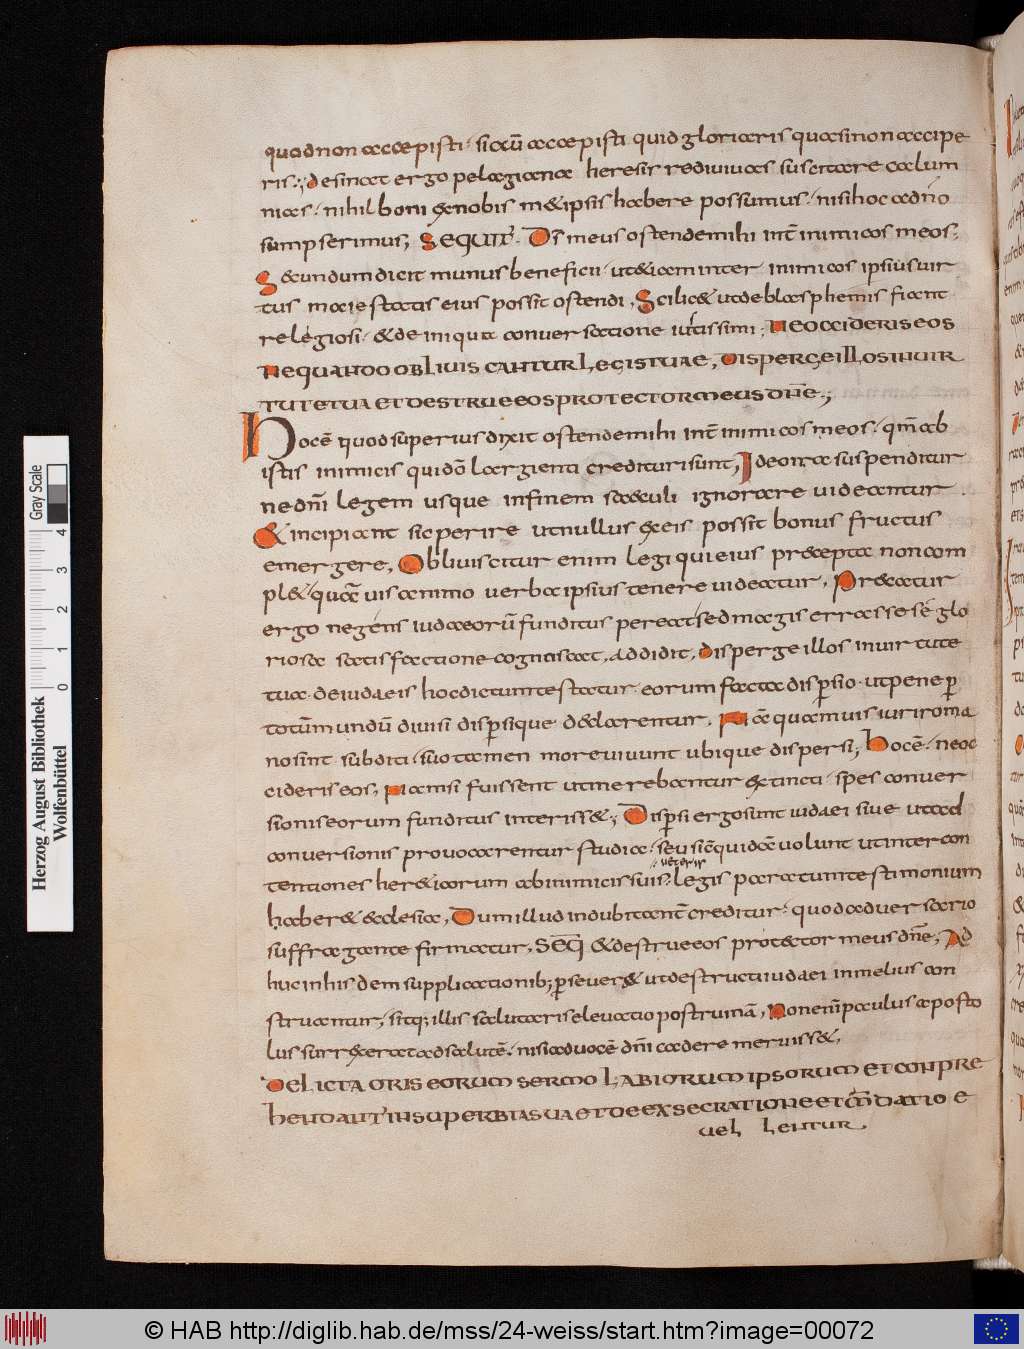 quod non accepisti. si aũ accepisti quid gloriaris quasi non accipe
ris.; desinat ergo pelagiana heresis redivivas suscitare calum
nias. nihil boni ex nobis metipsis habere possumus. nisi hoc a dnō
sumpserimus; SEQUIT̃. Ds̄ meus ostende mihi int̄ inimicos meos.
Secundum dicit munus beneficii. ut etiam inter inimicos ipsius uir
tus maiestatis eius possit ostendi. Scilicet ut de blasphemis fiant
relegiosi. & de iniqua conuersatione iustissimi; NE OCCIDERIS EOS
NEQUANDO OBLIUISCANTUR LEGIS TUAE, DISPERGE ILLOS IN UIR
TUTE TUA ET DESTRUE EOS PROTECTOR MEUS DÑE.;
Hoc ē quod superius dixit ostende mihi int̄ inimicos meos. qm̄ ab
istis inimicis quidā largienti creditur i sunt, Ideo ita suspenditur
ne dnī legem usque in finem saeculi ignorare uideantur
& incipiant sic perire ut nullus ex eis possit bonus fructus
emergere, Obliuiscitur enim legi qui eius praecepta non com
plet, quāuis animo uerba ipsius tenere uideatur, Praecatur
ergo ne gens iudaeorū funditus pereat sed magis errasse se glo
riosa satisfactione cognoscat, addidit, disperge illos in uirtute
tua. de iudaeis hoc dictum testatur eorum facta dispersio. ut pene p̄
totū mundū diuisi dispersique declarentur, Nā quamuis iuri roma
no sint subditi. suo tamen more uiuunt ubique dispersi; Hoc ē. ne oc
cideris eos; Nam si fuissent utine rebantur extincti. spes conuer
sionis eorum funditus interisset; Dispersi ergo sunt iudaei siue ut ad
conuersionis prouocarentur studia. seu sic̄ quidā uolunt ut inter con
ueteris
tentiones hereticorum ab inimicis suis legis paratum testimonium
haberet ecclesia, Dum illud indubitant̄ creditur. quod aduersario
suffragante firmatur, SEQ̄ & destrue eos protector meus dñe, Ad
huc in hisdem supplicationib; p̄seueret ut destructi iudaei in melius con
struantur, sitq; illis salutaris eleuatio post ruinā, Non enim paulus aposto
lus surrexerat ad salutē. nisi ad uocē dnī cadere meruisset,
DELICTA ORIS EORUM SERMO LABIORUM IPSORUM ET CONPRE
HENDANT̃ IN SUPERBIA SUA ET DE EXSECRATIONE ET M̄DATIO E
uel lentur.
Gray Scale
4 3 2 1 0
Herzog August Bibliothek
Wolfenbüttel
© HAB http://diglib.hab.de/mss/24-weiss/start.htm?image=00072